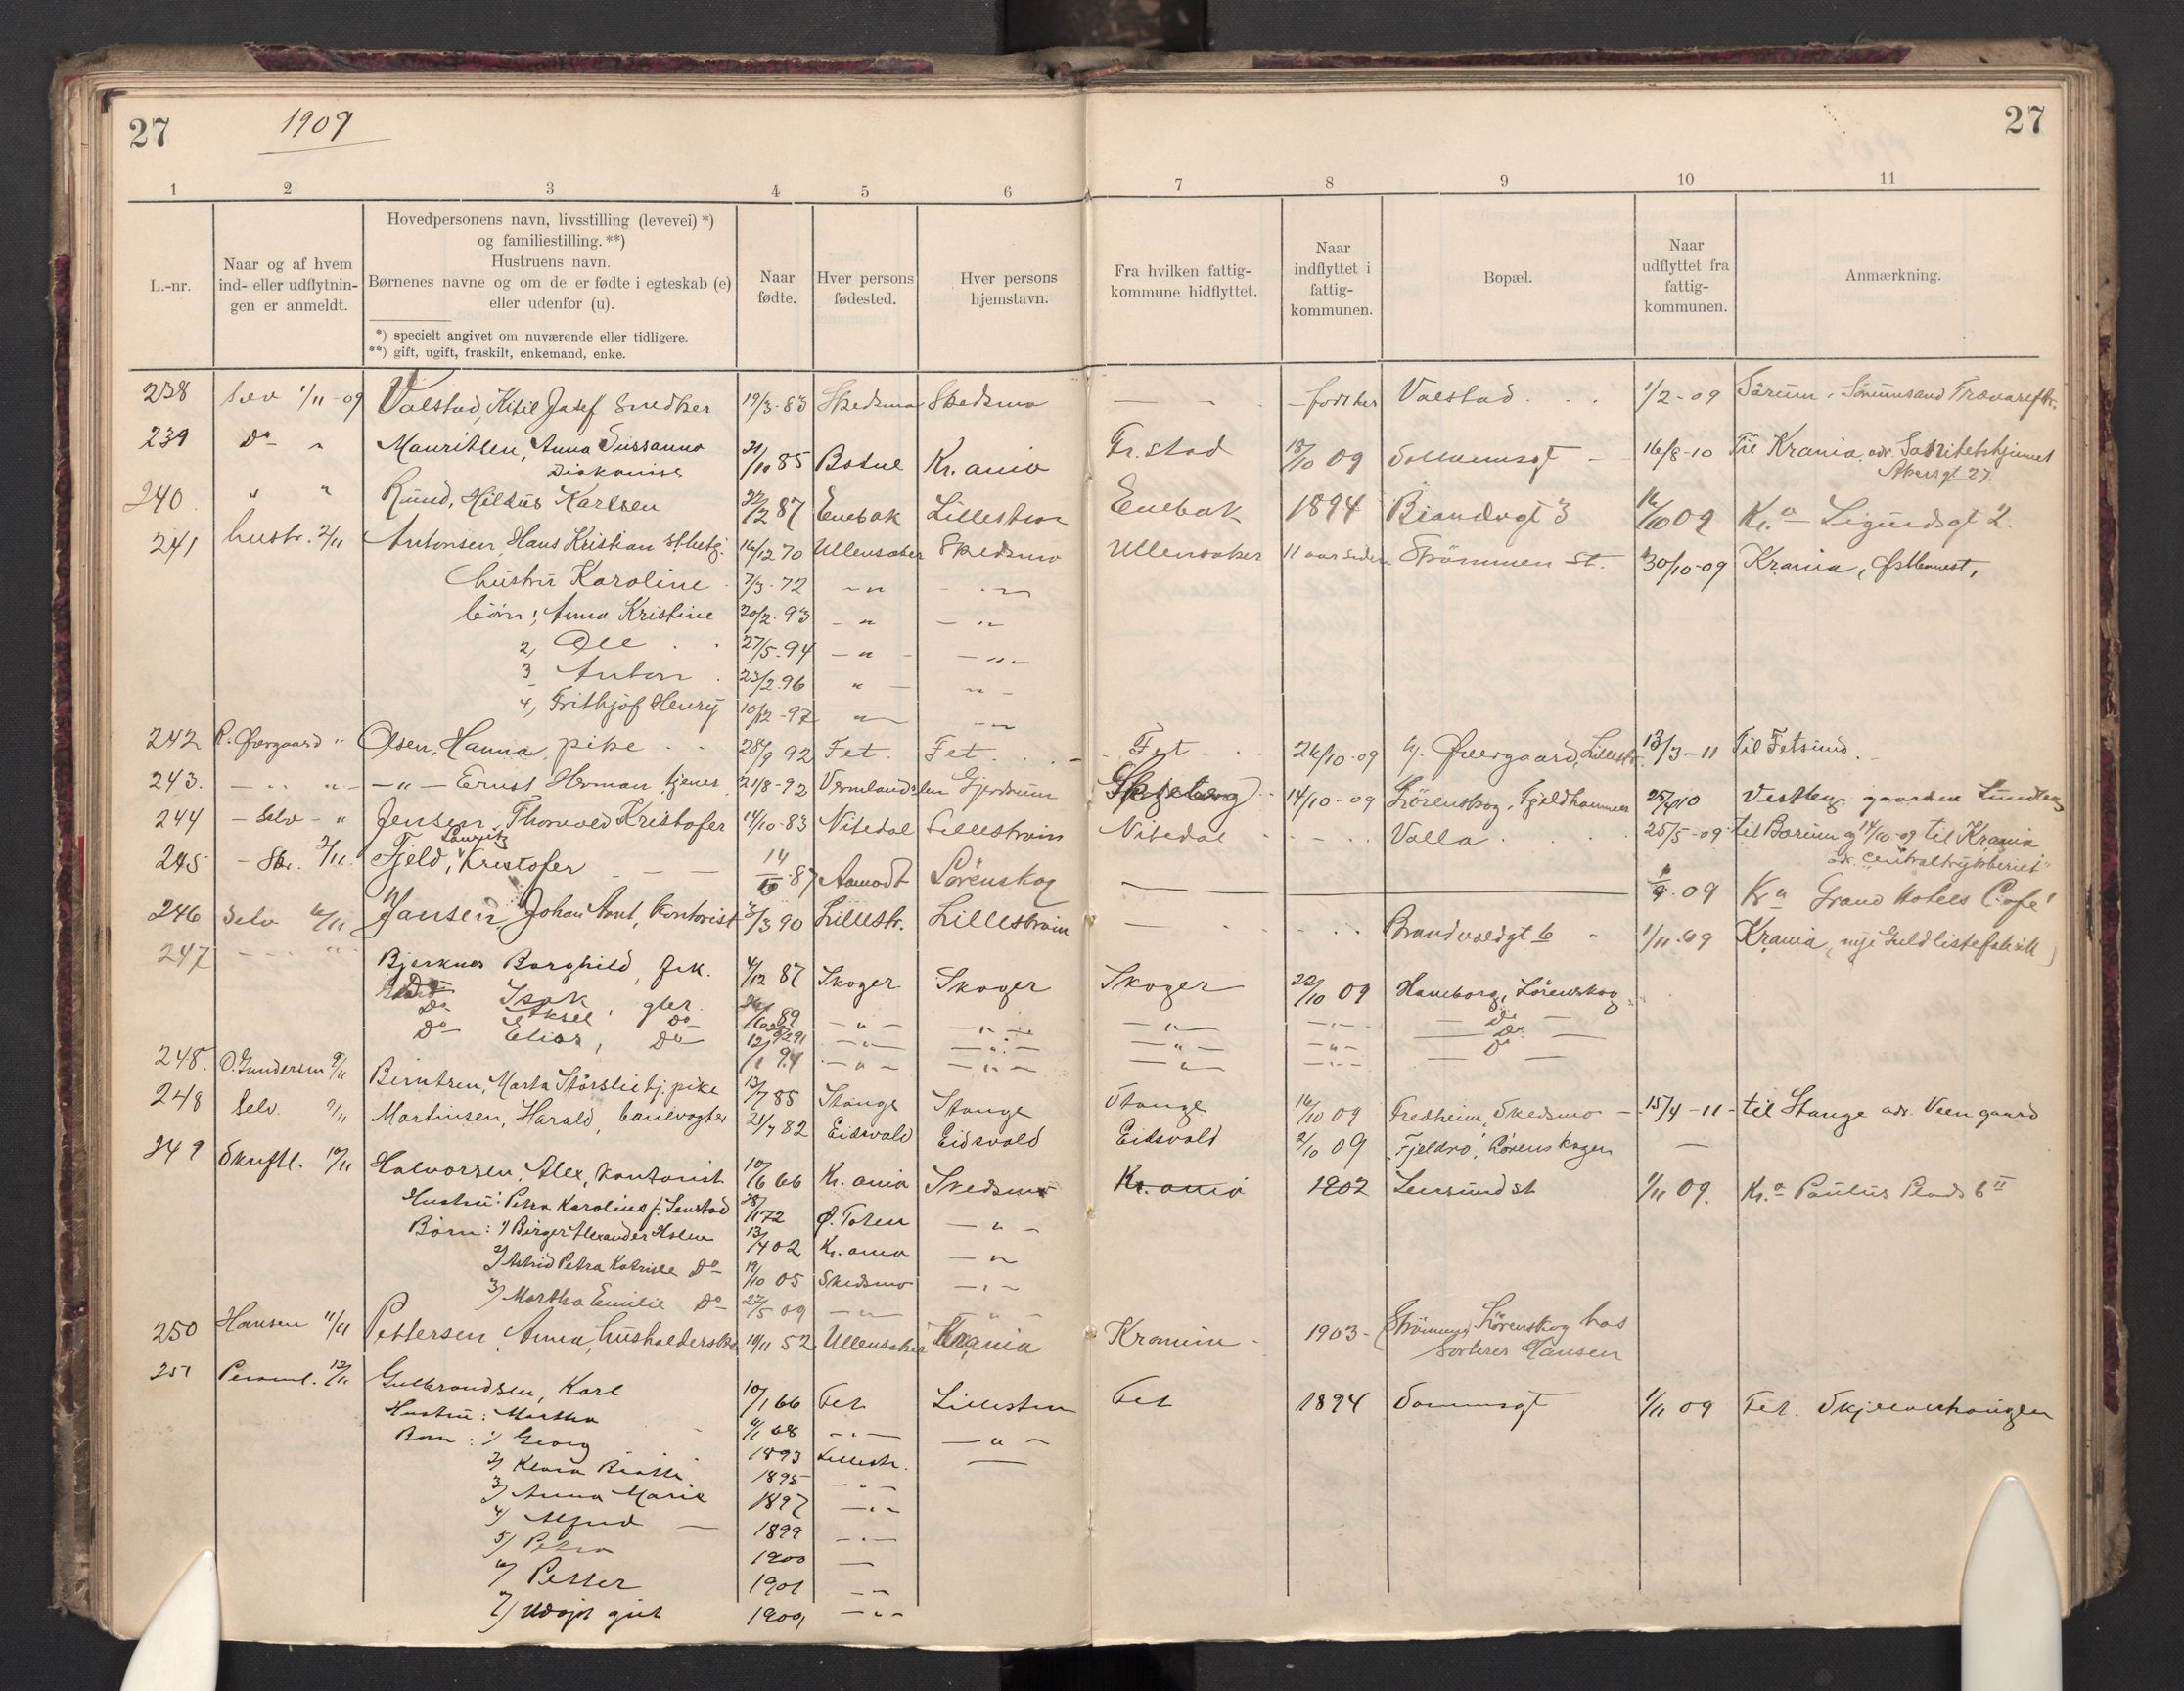 27 1909 27
1 2 3 4 5 6 7 8 9 10 11
L.-nr.
Naar og af hvem
ind- eller udflytnin-
gen er anmeldt.
Hovedpersonens navn, livsstilling (levevei) *)
og familiestilling. **)
Hustruens navn.
Børnenes navne og om de er fødte i egteskab (e)
eller udenfor (u).
*) specielt angivet om nuværende eller tidligere.
**) gift, ugift, fraskilt, enkemand, enke.
Naar
fødte.
Hver persons
fødested.
Hver persons
hjemstavn.
Fra hvilken fattig-
kommune hidflyttet.
Naar
indflyttet i
fattig-
kommunen.
Bopæl.
Naar
udflyttet fra
fattig-
kommunen.
Anmærkning.
238 Selv 1/11-09 Valstad, Josef Snedker 19/3-83 Skedsmo Skedsmo — - - Valstad . . . 1/2-09 Sørum, Sørumsand
239 Do " Mauritsen, Anna Sussanna 21/10 85 Botne Kr.ania Fr.stad 18/10 09 16/8-10 Til Krania, adr.
Diakonise
Akersgt 27.
240 " " Ruud, Karlsen 22/2 87 Enebak Lillestrøm Enebak 1894 3 16/10 09 Kr.a Sigurdsgt 2.
241 hustr. 2/11 Antonsen, Hans Kristian 16/12 70 Ullensaker Skedsmo Ullensaker 11 aar siden Strømmen St. 30/10-09 Krania,
hustru Karoline 7/3-72 — " — "
børn 1, Anna Kristine 20/2-93 — " — "
2, Ole . . 27/5-94 — " — "
3 Anton . 23/2-96 " — " —
4, Frithjof Henry 10/12-97 " — "
242 " Olsen, Hanna, pike . . 28/9 92 Fet. Fet. . . . Fet . . . 26/10-09 Øvergaard, Lillestr. 13/3-11 Til Fetsund.
243. — " — " — Ernst Herman, tjener 21/8-92 Vermlandslen Gjerdrum 14/10-09 Lørenskog, Fjeldhammer 25/4 10
244 — Selv — " Jensen, Thorvald Kristofer 14/10-83 Nitedal Lillestrøm Nitedal - - - Valla . . . 25/5-09 til Bærum og 14/10-09 til Krania
adr. "Centraltrykkeriet"
Lauritz
245 — 2/11. Fjeld, Kristofer — — — 14/10-87 Aamodt Lørenskog — — 1/9-09 Kra Grand Hotels Café
246 Selv 6/11 Jansen, Johan Ant, Kontorist 3/3 90 Lillestr. Lillestrøm — . . . Brandvoldgt 6 - 1/11-09 Krania, nye Guldlistefabrik
247 — - - " Bjerknes Borghild, Frk. 4/12 87 Skoger Skoger Skoger 22/10 09 Haneborg, Lørenskog
Do Isak, gbr. 89 — " — — " — — " — — " — — Do —
Do Aksel Do 91 — " — — " — — " — — " — — Do —
Do Elias, Do 94 — " — — " — — " — — " — — Do —
248. O. Gundersen 9/11 Berntsen, Marta tj. pike 13/7 85 Stange Stange Stange 16/10 09 Fredheim, Skedsmo — 15/4-11- til Stange adr. Veen gaard
248 Selv. 9/11 Martinsen, Harald, banevogter 21/7 82 Eidsvold Eidsvold Eidsvold 2/10 09 Fjeldro, Lørenskogen —
249 Skriftl. 10/11 Halvorsen, Alex, Kontorist 10/6 66 Kr.ania Skedsmo Kr.ania 1902 1/11 09. Kr.a Paulus Plads 6 II
Hustru: Petra Karoline f. 28/11 72 Ø. Toten — " —
Børn: 1/ Birger Alexander 13/4 02 Kr.ania — "
2/ Astrid Petra Do 19/10 05 Skedsmo — " —
3/ Martha Emilie Do 27/5 09 — " — — " —
250 Hansen 11/11 Pettersen, Anna, husholderske 19/11 52 Ullensaker Krania Krania - 1903- Strømmen, Lørenskog hos
Hansen
251 Personl. 12/11 Gulbrandsen, Karl 10/1 66 Fet Lillestrøm Fet 1894 1/11 09 Fet.
Hustru: Martha 68 — " — — " —
Børn: 1/ Georg 1893 Lillestr. —
2/ Klara 1895 — " —
3/ Anna Marie 1897 — " —
4/ Alfred — 1899 — " —
5/ Petra 1900 —
6/ Petter 1901 — " —
7/ Udøpt gut 1909 — " —